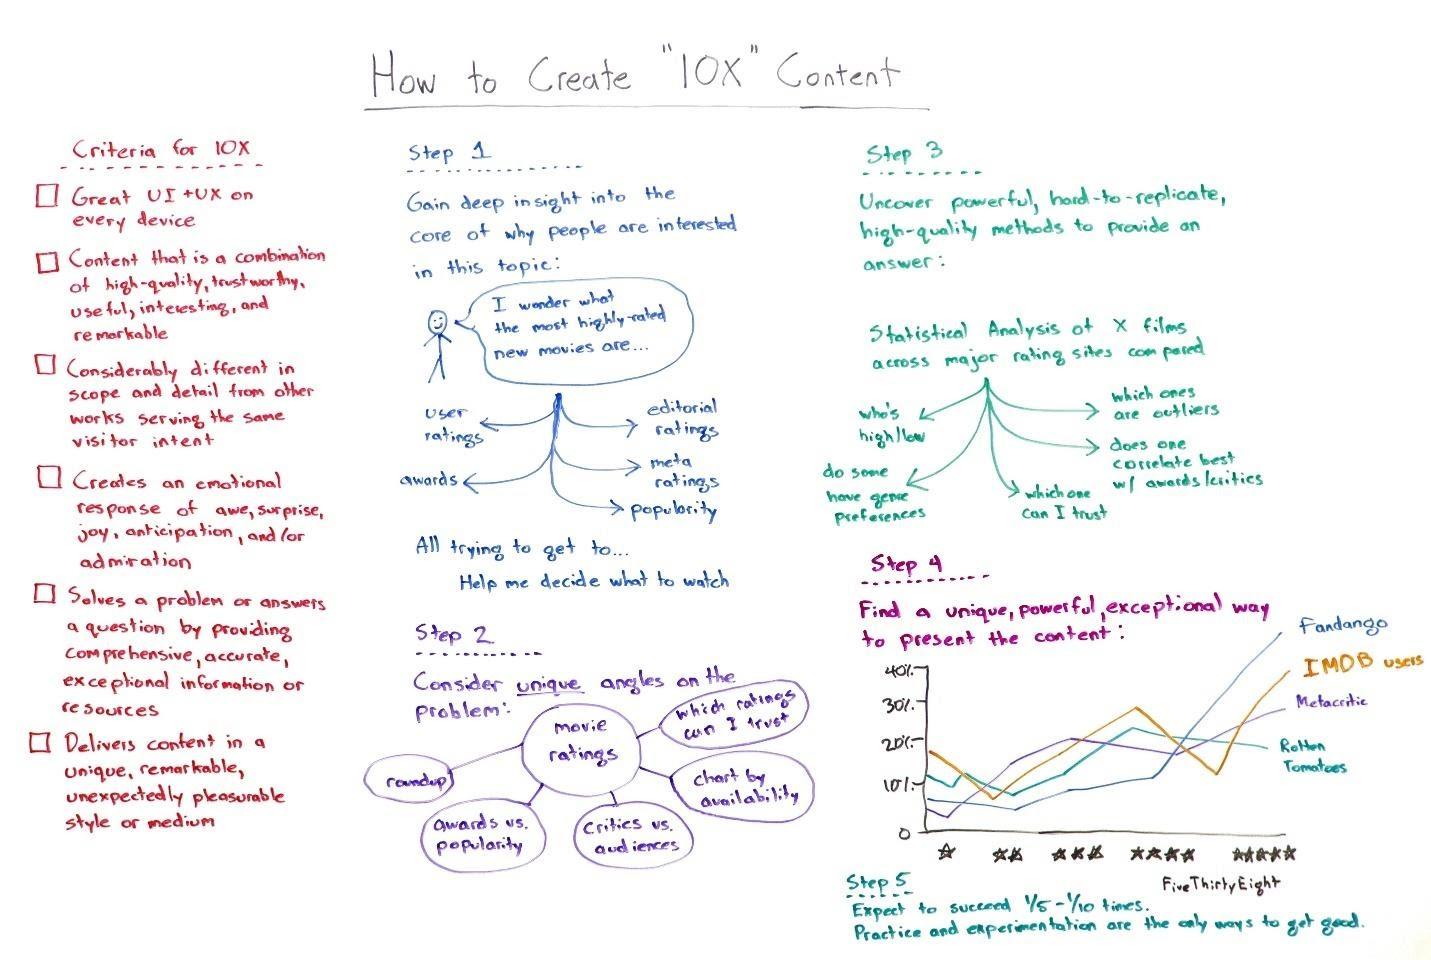 How to Create "10X" Content
Criteria for 10X
Great UI+UX on
every device
Content that is a combination
of high-quality, trustworthy,
useful, interesting, and
remarkable
Considerably different in
scope and detail from other
works serving the same
visitor intent
Creates an emotional
response of awe, surprise,
joy, anticipation, and/or
admiration
Solves a problem or answers
a question by providing
comprehensive, accurate,
exceptional information or
resources
Delivers content in a
unique, remarkable,
unexpectedly pleasurable
style or medium
Step 1
Gain deep insight into the
core of why people are interested
in this topic:
I wonder what
the most highly-rated
new movies are...
user
ratings
awards
editorial
ratings
meta
ratings
popularity
All trying to get to...
Help me decide what to watch
Step 2
Consider unique angles on the
problem:
movie
ratings
which ratings
can I trust
roundup
chart by
availability
awards vs.
popularity
critics vs.
audiences
Step 3
Uncover powerful, hard-to-replicate,
high-quality methods to provide an
answer:
Statistical Analysis of X films
across major rating sites compared
who's
high/low
do some
have genre
preferences
which one
can I trust
which ones
are outliers
does one
correlate best
w/ awards/critics
Step 4
Find a unique, powerful, exceptional way
to present the content:
40%
30%
20%
10%
0
Fandango
IMDB users
Metacritic
Rotten
Tomatoes
FiveThirtyEight
Step 5
Expect to succeed 1/5 - 1/10 times.
Practice and experimentation are the only ways to get good.